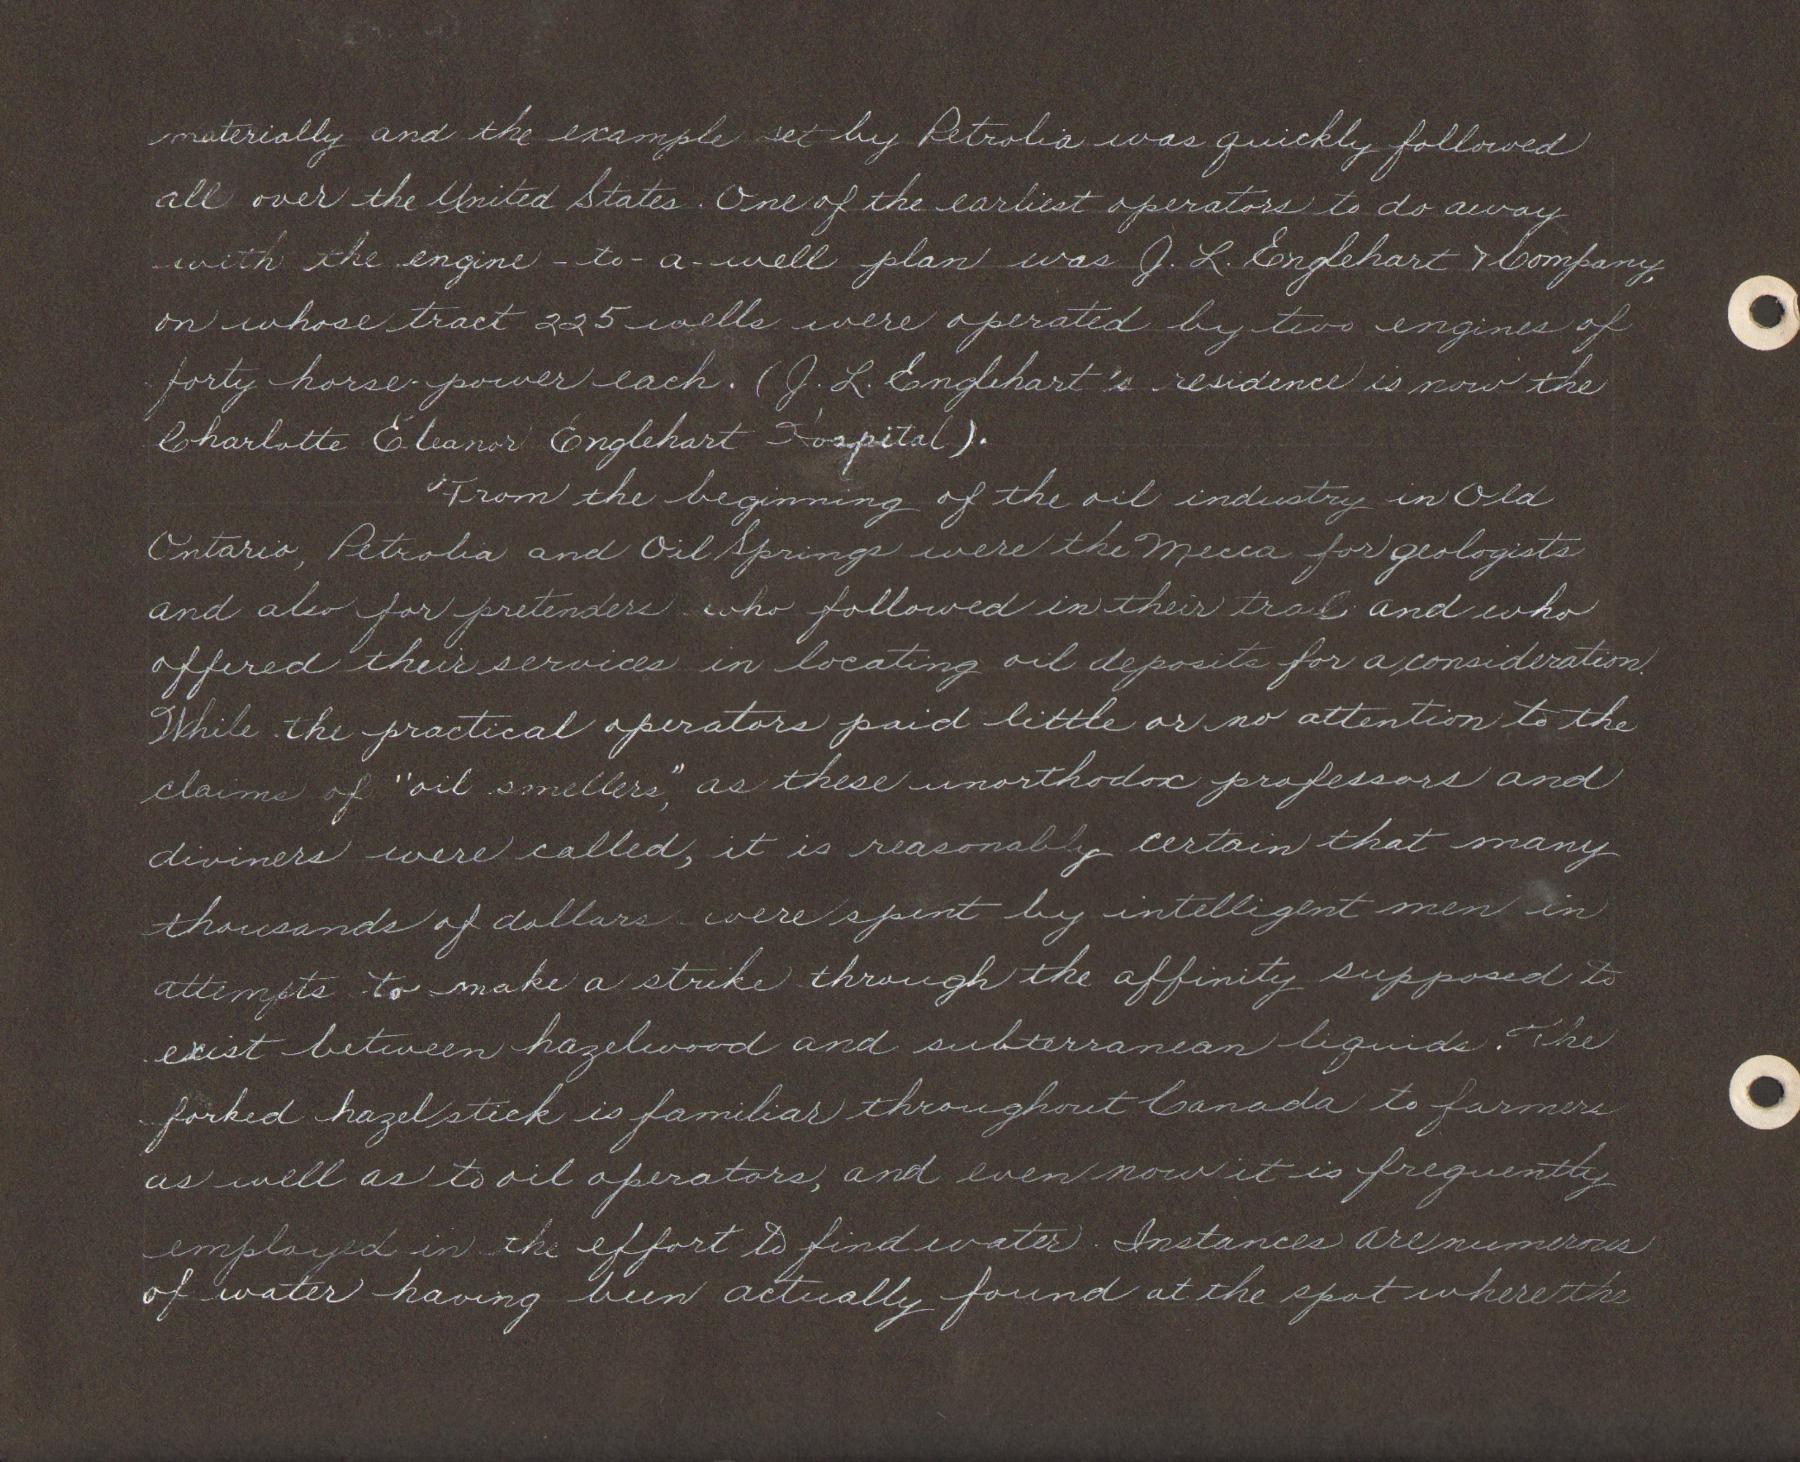 materially and the example set by Petrolia was quickly followed
all over the United States. One of the earliest operators to do away
with the engine-to-a-well plan was J. L. Englehart & Company,
on whose tract 225 wells were operated by two engines of
forty horse-power each. (J. L. Englehart's residence is now the
Charlotte Eleanor Englehart Hospital).
From the beginning of the oil industry in Old
Ontario, Petrolia and Oil Springs were the Mecca for geologists
and also for pretenders who followed in their trail and who
offered their services in locating oil deposits for a consideration.
While the practical operators paid little or no attention to the
claims of "oil smellers," as these unorthodox professors and
diviners were called, it is reasonably certain that many
thousands of dollars were spent by intelligent men in
attempts to make a strike through the affinity supposed to
exist between hazelwood and subterranean liquids. The
forked hazel stick is familiar throughout Canada to farmers
as well as to oil operators, and even now it is frequently
employed in the effort to find water. Instances are numerous
of water having been actually found at the spot where the